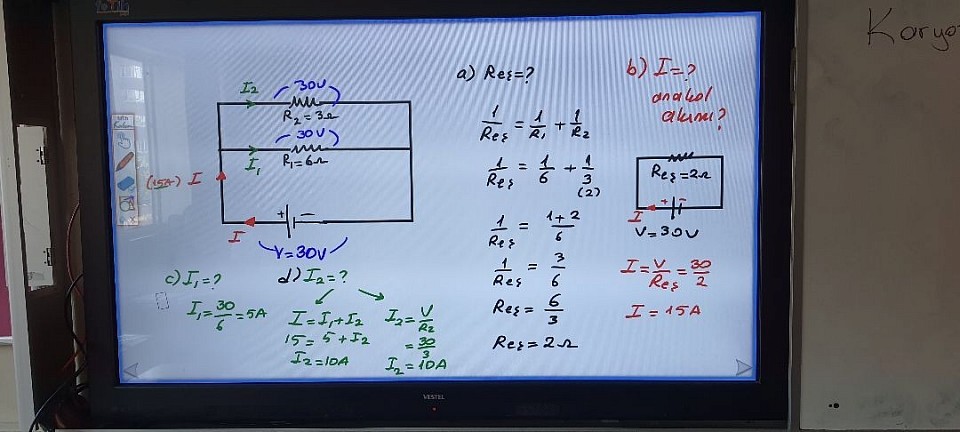 Karyo
I2
30V
R2=3Ω
30V
I1
R1=6Ω
(15A) I
+ −
I
V=30V
a) Reş=?
1/Reş = 1/R1 + 1/R2
1/Reş = 1/6 + 1/3
(2)
1/Reş = 1+2/6
1/Reş = 3/6
Reş = 6/3
Reş = 2Ω
b) I=?
anakol
akımı?
Reş=2Ω
I + −
V=30V
I = V/Reş = 30/2
I = 15A
c) I1=?
I1 = 30/6 = 5A
d) I2=?
I = I1 + I2
15 = 5 + I2
I2 = 10A
I2 = V/R2
= 30/3
I2 = 10A
VESTEL